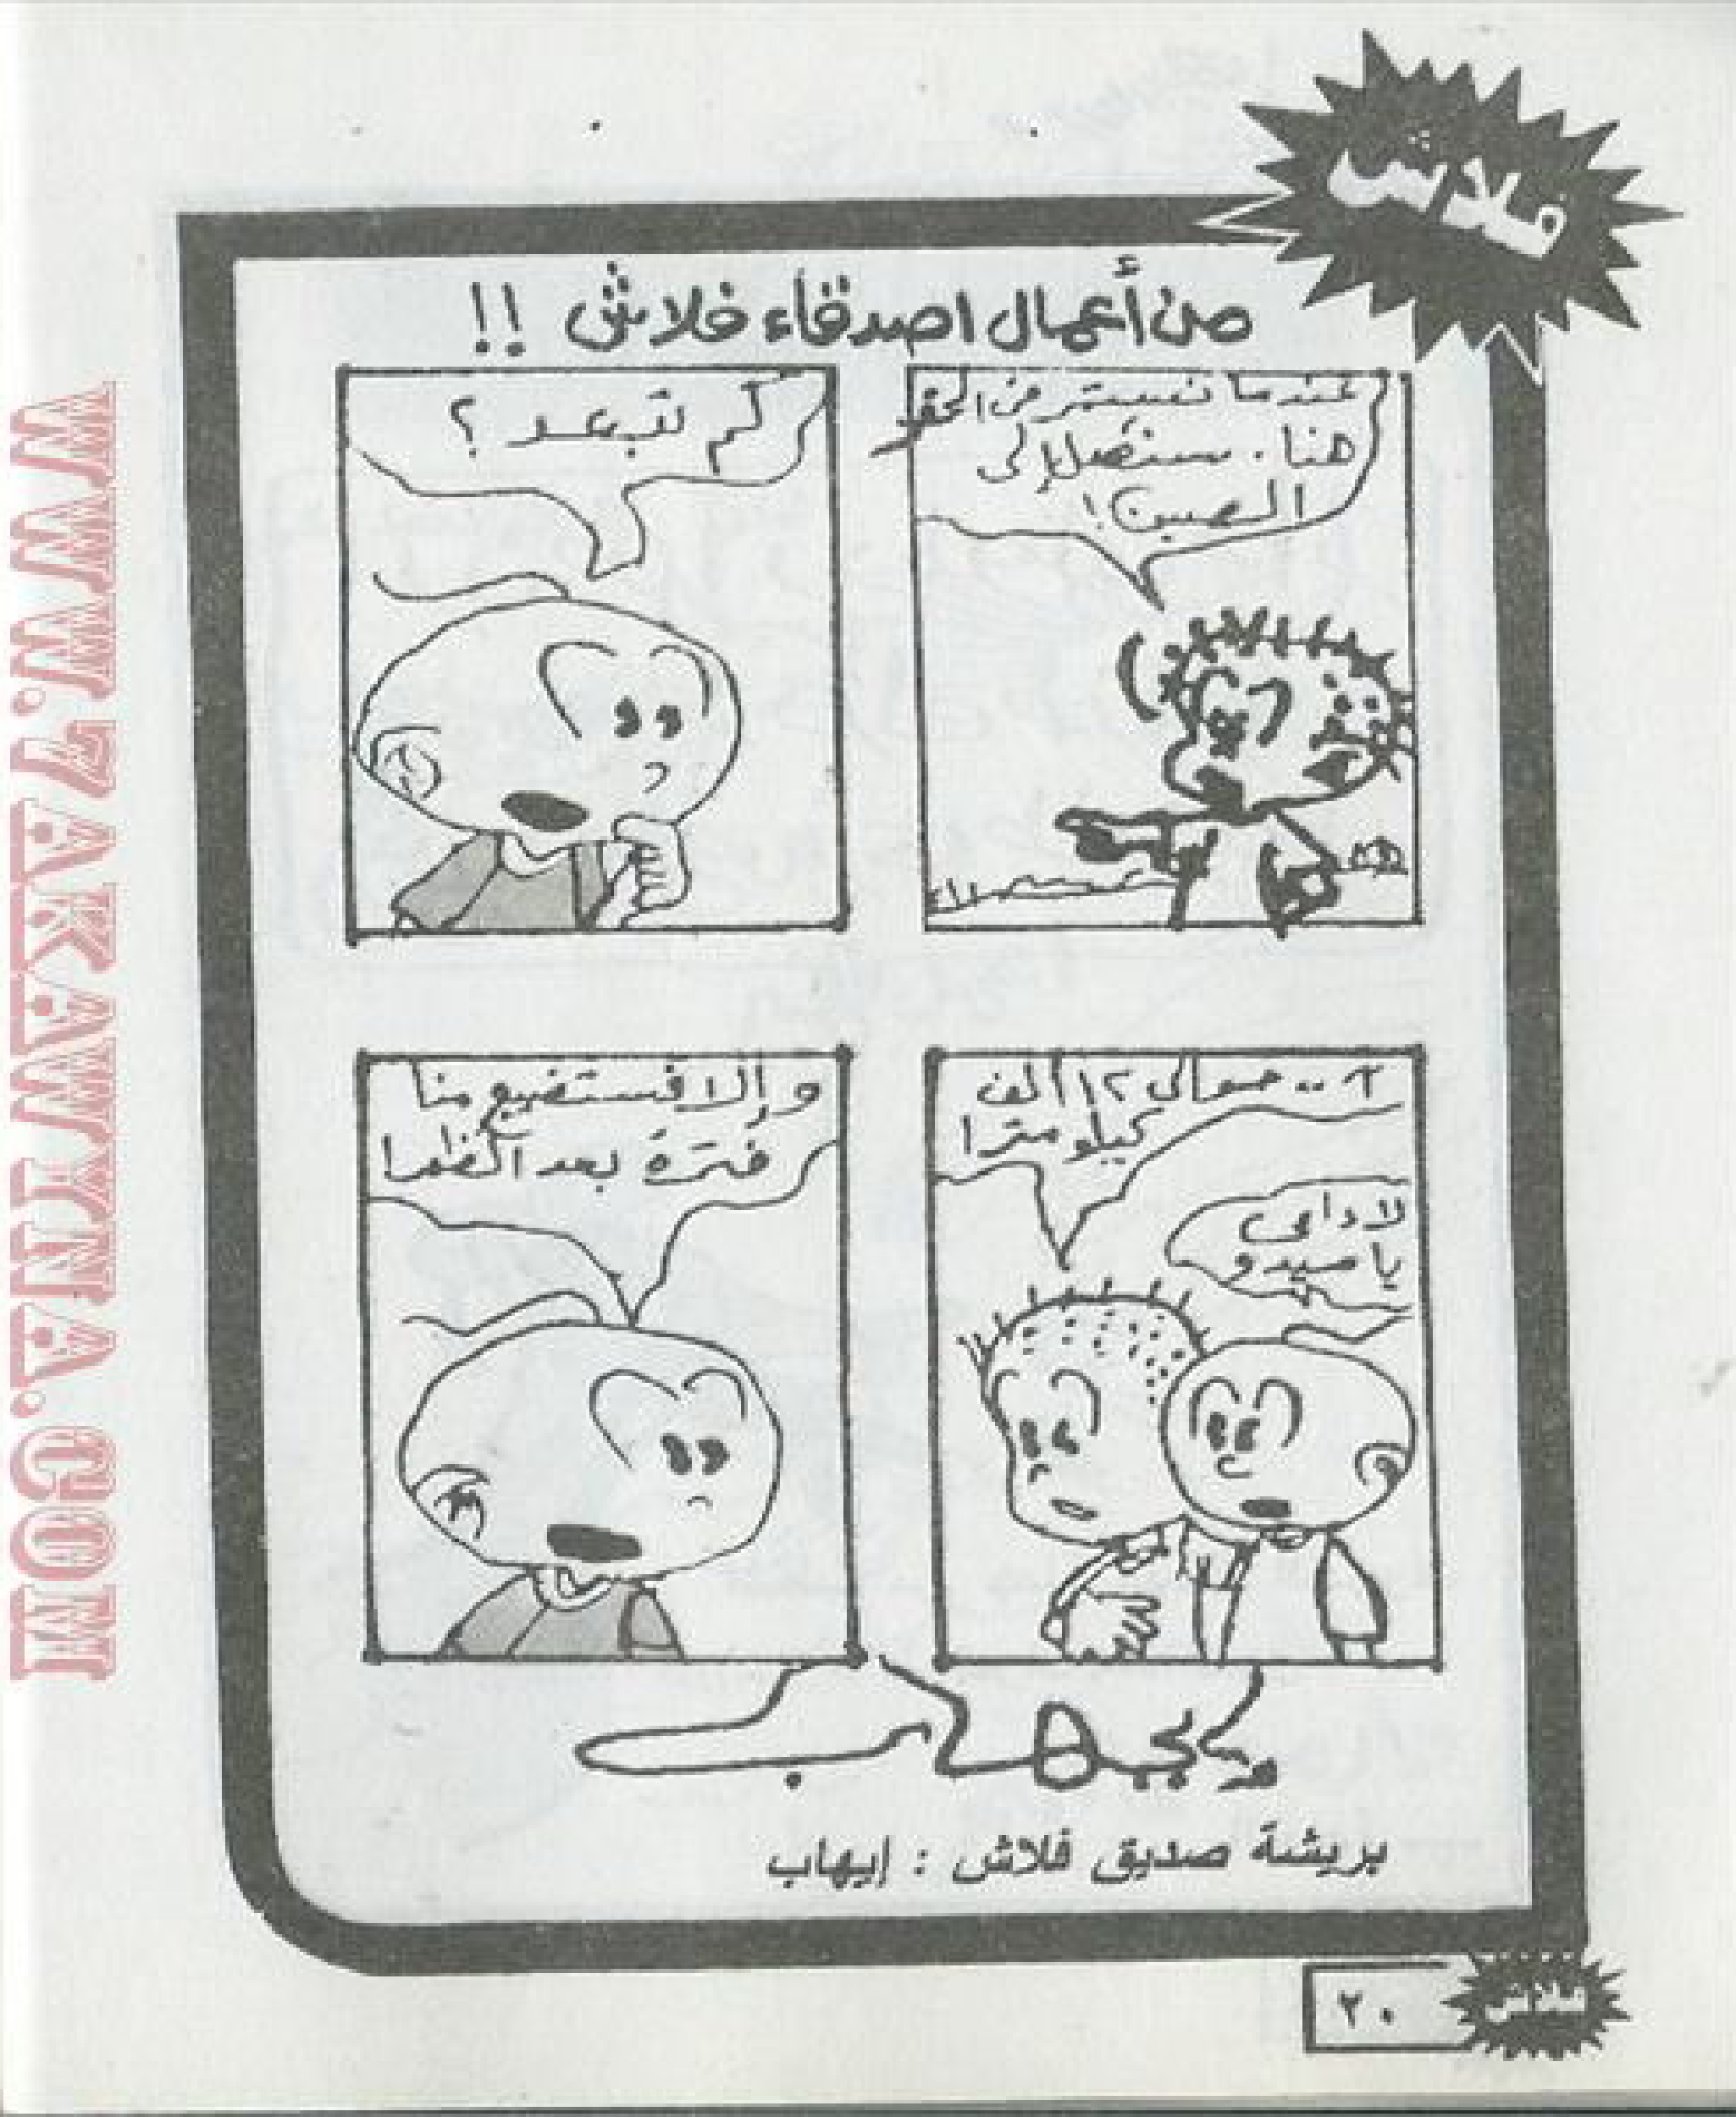 فلاش
من أعمال اصدقاء فلاش !!
عندما نستمر في الحفر
هنا . سنصل إلى
الصين !
كم تبعد ؟
٢ .. حوالى ١٢ ألف
كيلومترا
لا داعى
يا ميدو
و إلا فستضيع منا
فترة بعد الظهر !
إيهاب
بريشة صديق فلاش : إيهاب
٢٠
فلاش
WWW.7AKAWITNA.COM